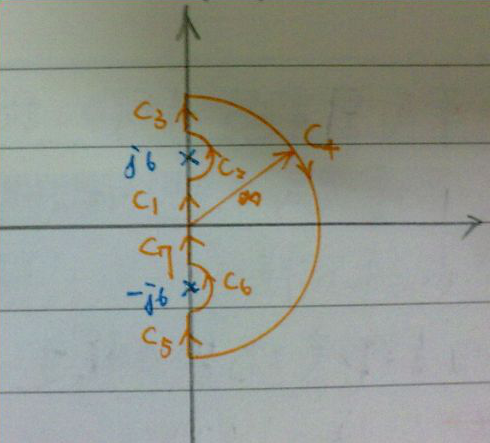 C3
C4
j6
C2
C1
∞
C7
-j6
C6
C5